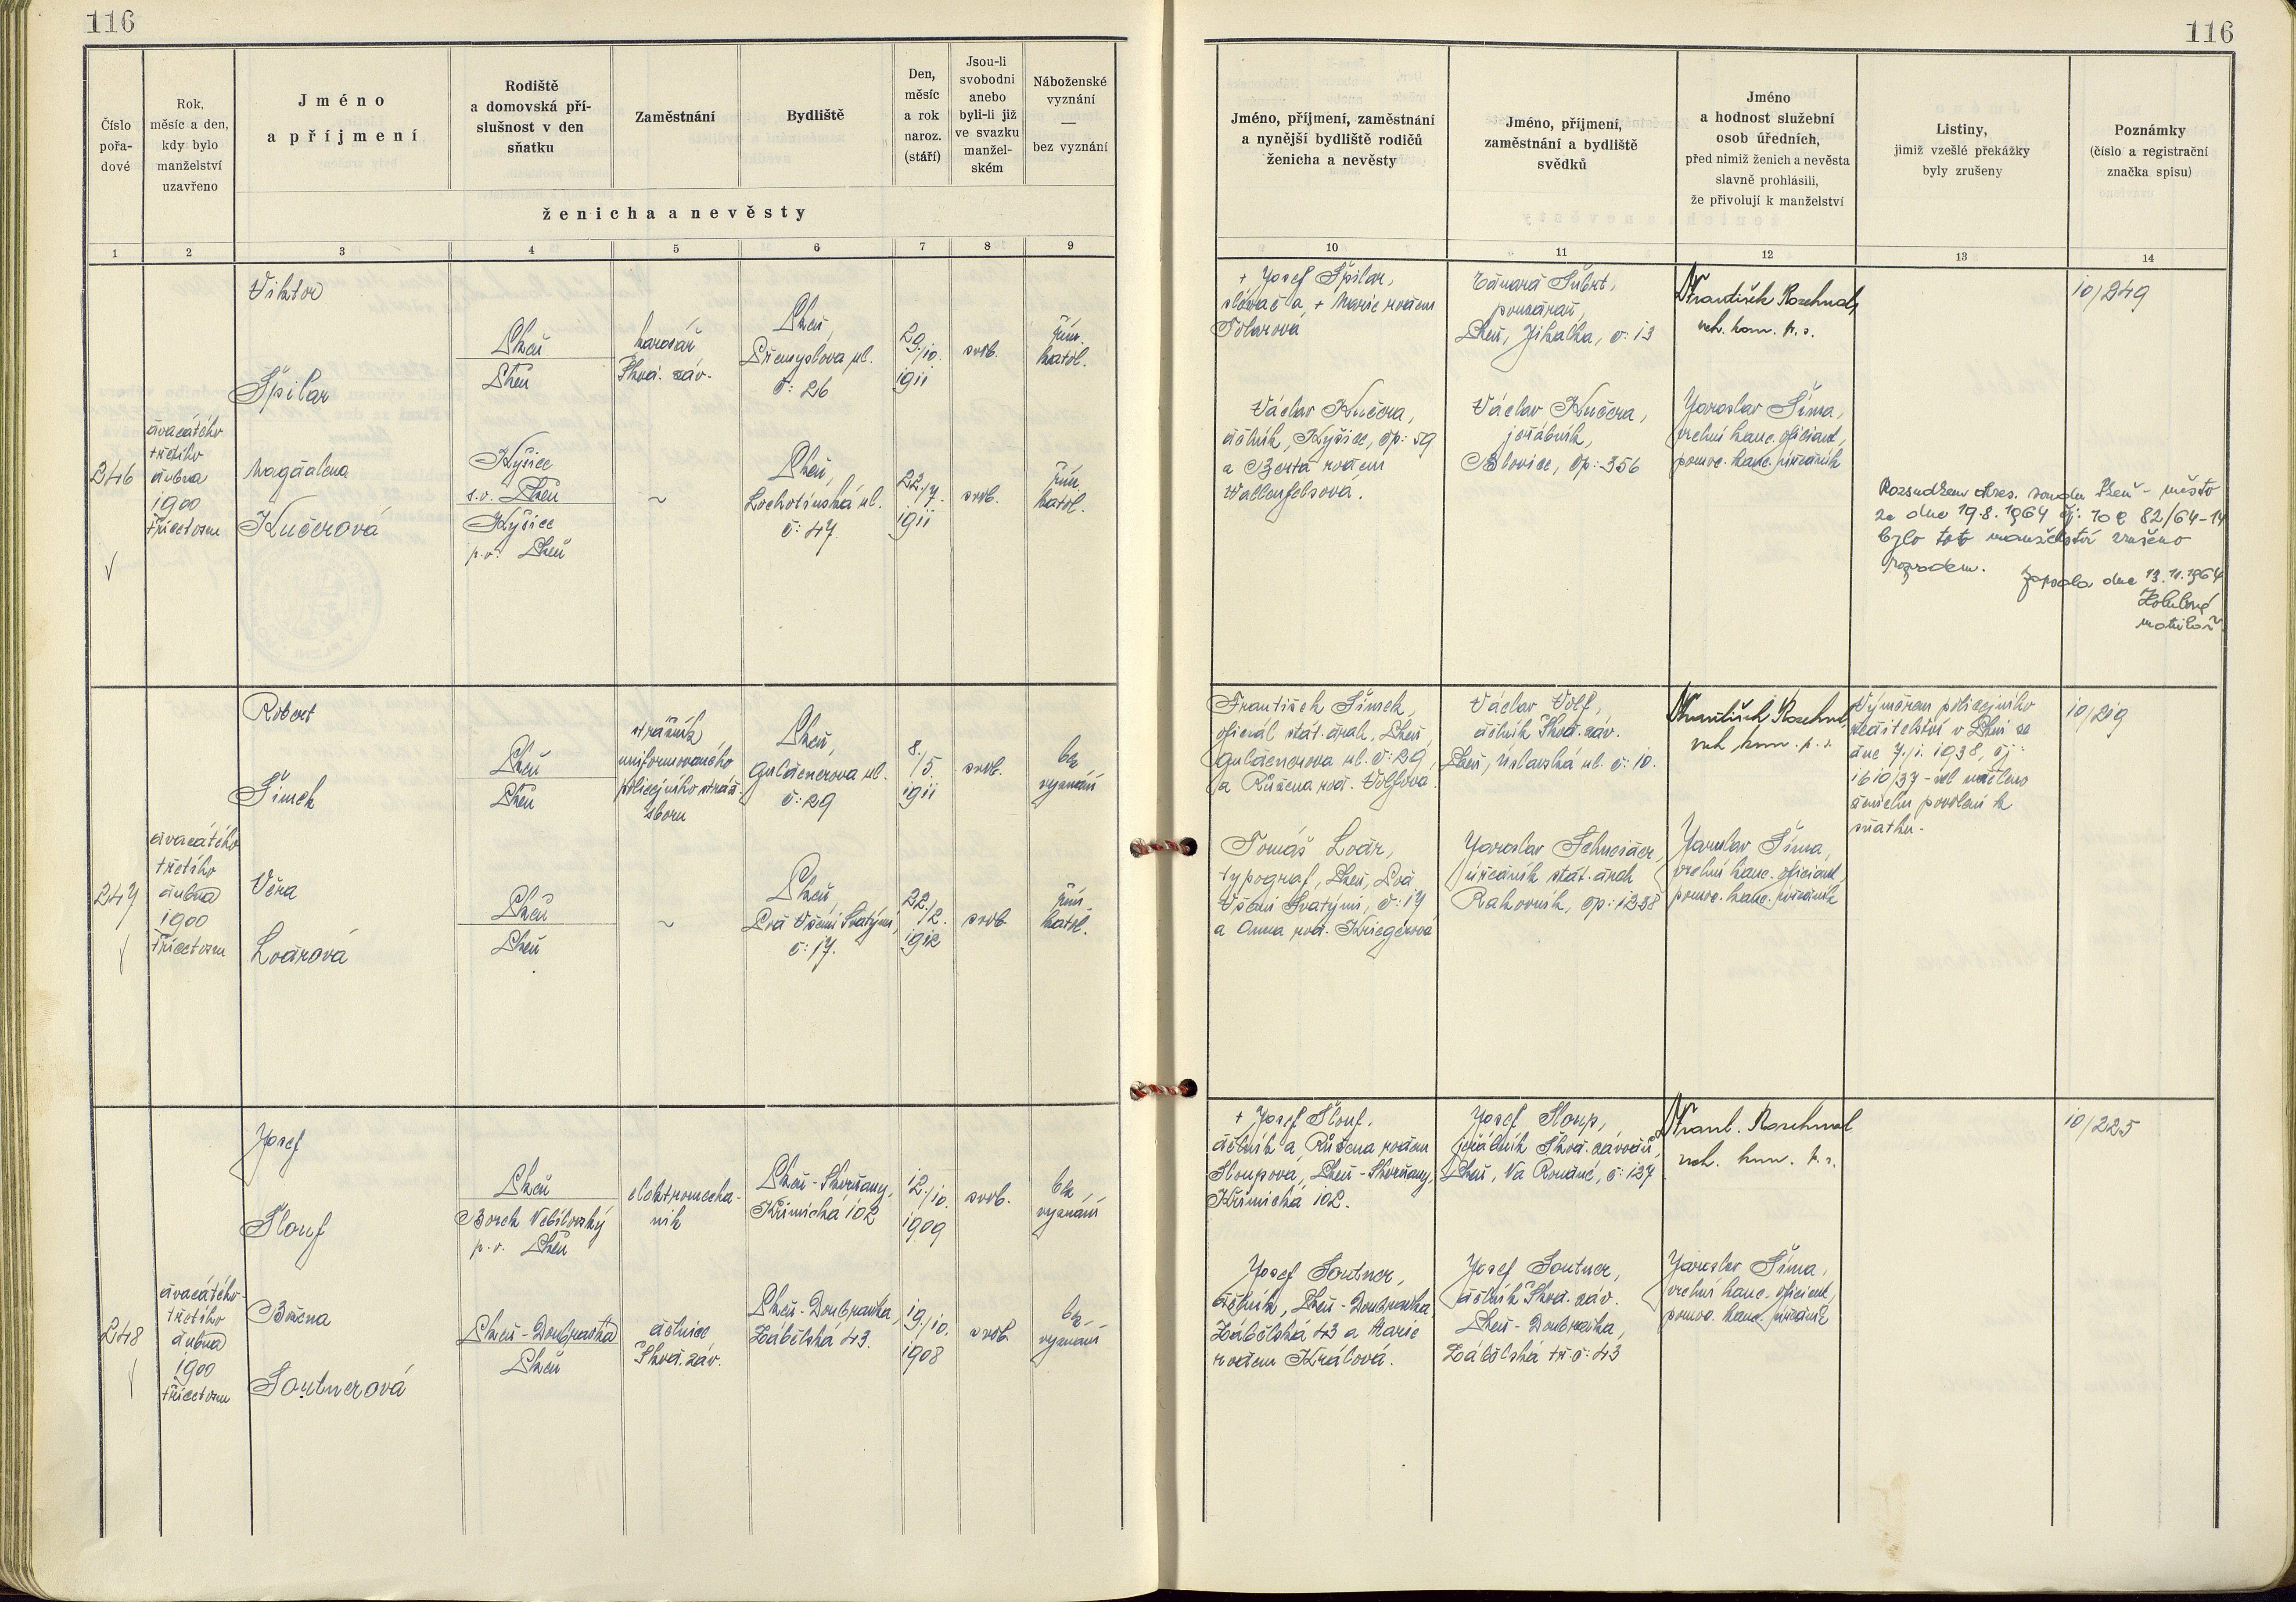 116
116
Číslo
pořa-
dové
Rok,
měsíc a den,
kdy bylo
manželství
uzavřeno
Jméno
a příjmení
Rodiště
a domovská pří-
slušnost v den
sňatku
Zaměstnání
Bydliště
Den,
měsíc
a rok
naroz.
(stáří)
Jsou-li
svobodni
anebo
byli-li již
ve svazku
manžel-
ském
Náboženské
vyznání
—
bez vyznání
ženicha a nevěsty
Jméno, příjmení, zaměstnání
a nynější bydliště rodičů
ženicha a nevěsty
Jméno, příjmení,
zaměstnání a bydliště
svědků
Jméno
a hodnost služební
osob úředních,
před nimiž ženich a nevěsta
slavně prohlásili,
že přivolují k manželství
Listiny,
jimiž vzešlé překážky
byly zrušeny
Poznámky
(číslo a registrační
značka spisu)
1 2 3 4 5 6 7 8 9
10 11 12 13 14
246
dvacátého
třetího
dubna
1900
třicetosm
Viktor
Špilar
Plzeň
Plzeň
Škod. záv.
Plzeň,
Přemyslova ul.
č: 26
29./10.
1911
svob.
řím.
katol.
Magdalena
Kučerová
Kyšice
s.o. Plzeň
Kyšice
p.o. Plzeň
~
Plzeň,
Lochotínská ul.
č: 47.
22./7.
1911
svob.
řím.
katol.
+ Josef Špilar,
slévač a + Marie rodem
Václav Kučera,
dělník, Kyšice, čp: 59
a Berta rodem
Wallenfelsová.
Eduard Šubrt,
Plzeň, Jikalka, č: 13
Václav Kučera,
jeřábník,
Blovice, čp: 356
František Rosehnal
rch. kom. p. s.
Jaroslav Šíma,
vrchní kanc. oficiant,
pomoc. kanc. úředník
Rozsudkem okres. soudu Plzeň - město
ze dne 19.8.1964 čj: 10 C 82/64-14
bylo toto manželství zrušeno
rozvodem.
Zapsala dne 13.11.1964
matrikář
10/249
247
dvacátého
třetího
dubna
1900
třicetosm
Robert
Šimek
Plzeň
Plzeň
strážník
uniformovaného
policejního stráž.
sboru
Plzeň,
Guldenerova ul.
č: 29
8./5.
1911
svob.
bez
vyznání
Věra
Lodrová
Plzeň
Plzeň
~
Plzeň,
Pod Všemi Svatými,
č: 17.
22./2.
1912
svob.
řím.
katol.
František Šimek,
oficiál stát. drah, Plzeň,
Guldenerova ul. č: 29,
a Růžena rod. Wolfova.
Tomáš Lodr,
typograf, Plzeň, Pod
Všemi Svatými, č: 17
a Anna rod. Kriegerová
Václav Wolf,
dělník Škod. záv.
Plzeň, Úslavská ul. č: 10.
Jaroslav Schneider,
úředník stát. drah
Rakovník, čp: 1238
František Rosehnal
rch. kom. p. s.
Jaroslav Šíma,
vrchní kanc. oficiant,
pomoc. kanc. úředník
Výměrem policejního
ředitelství v Plzni ze
dne 7./1. 1938, čj:
uděleno
ženichu povolení k
sňatku.
10/219
248
dvacátého
třetího
dubna
1900
třicetosm
Josef
Šlouf
Plzeň
Borek Nebílovský
p.o. Plzeň
elektromecha-
nik
Plzeň-Skvrňany,
Křimická 102
12./10.
1909
svob.
bez
vyznání
Božena
Soutnerová
Plzeň-Doubravka
Plzeň
dělnice
Škod. záv.
Plzeň-Doubravka,
Zábělská 43.
19./10.
1908
svob.
bez
vyznání
+ Josef Šlouf,
dělník a Růžena rodem
Sloupova, Plzeň-Skvrňany,
Křimická 102.
Josef Soutner,
dělník, Plzeň-Doubravka,
Zábělská 43 a Marie
rodem Králová.
Josef Sloup,
jeřábník Škod. závodů,
Plzeň, Na Roudné, č: 127
Josef Soutner,
dělník Škod. záv.
Plzeň-Doubravka,
Zábělská tř. č: 43
Frant. Rosehnal
rch. kom. p. s.
Jaroslav Šíma,
vrchní kanc. oficiant,
pomoc. kanc. úředník
10/225